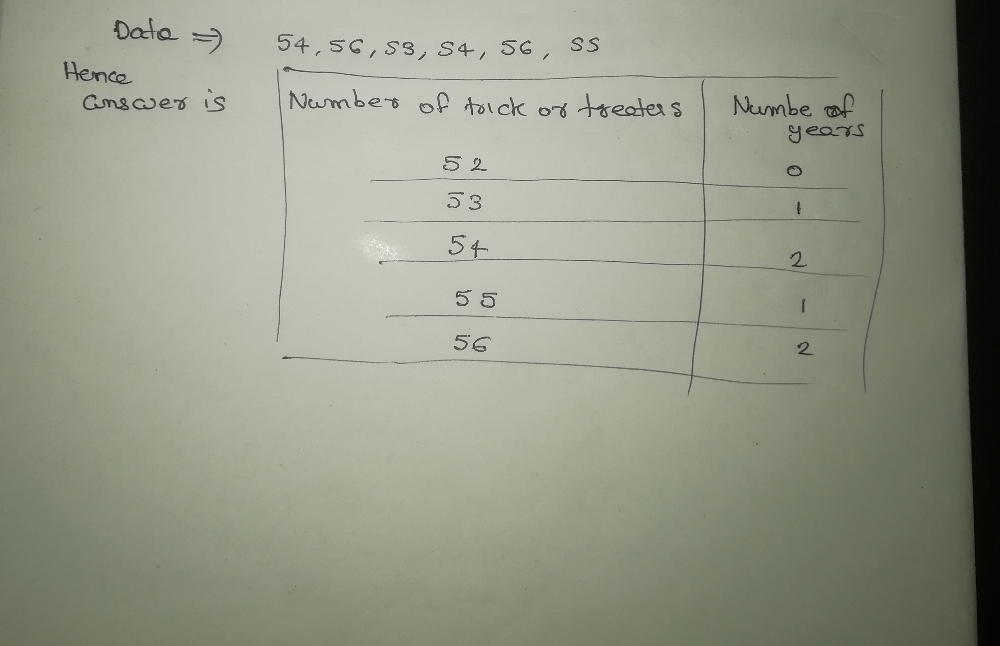 Data => 54, 56, 53, 54, 56, 55
Hence
answer is
Number of trick or treaters Numbe of
years
52 0
53 1
54 2
55 1
56 2